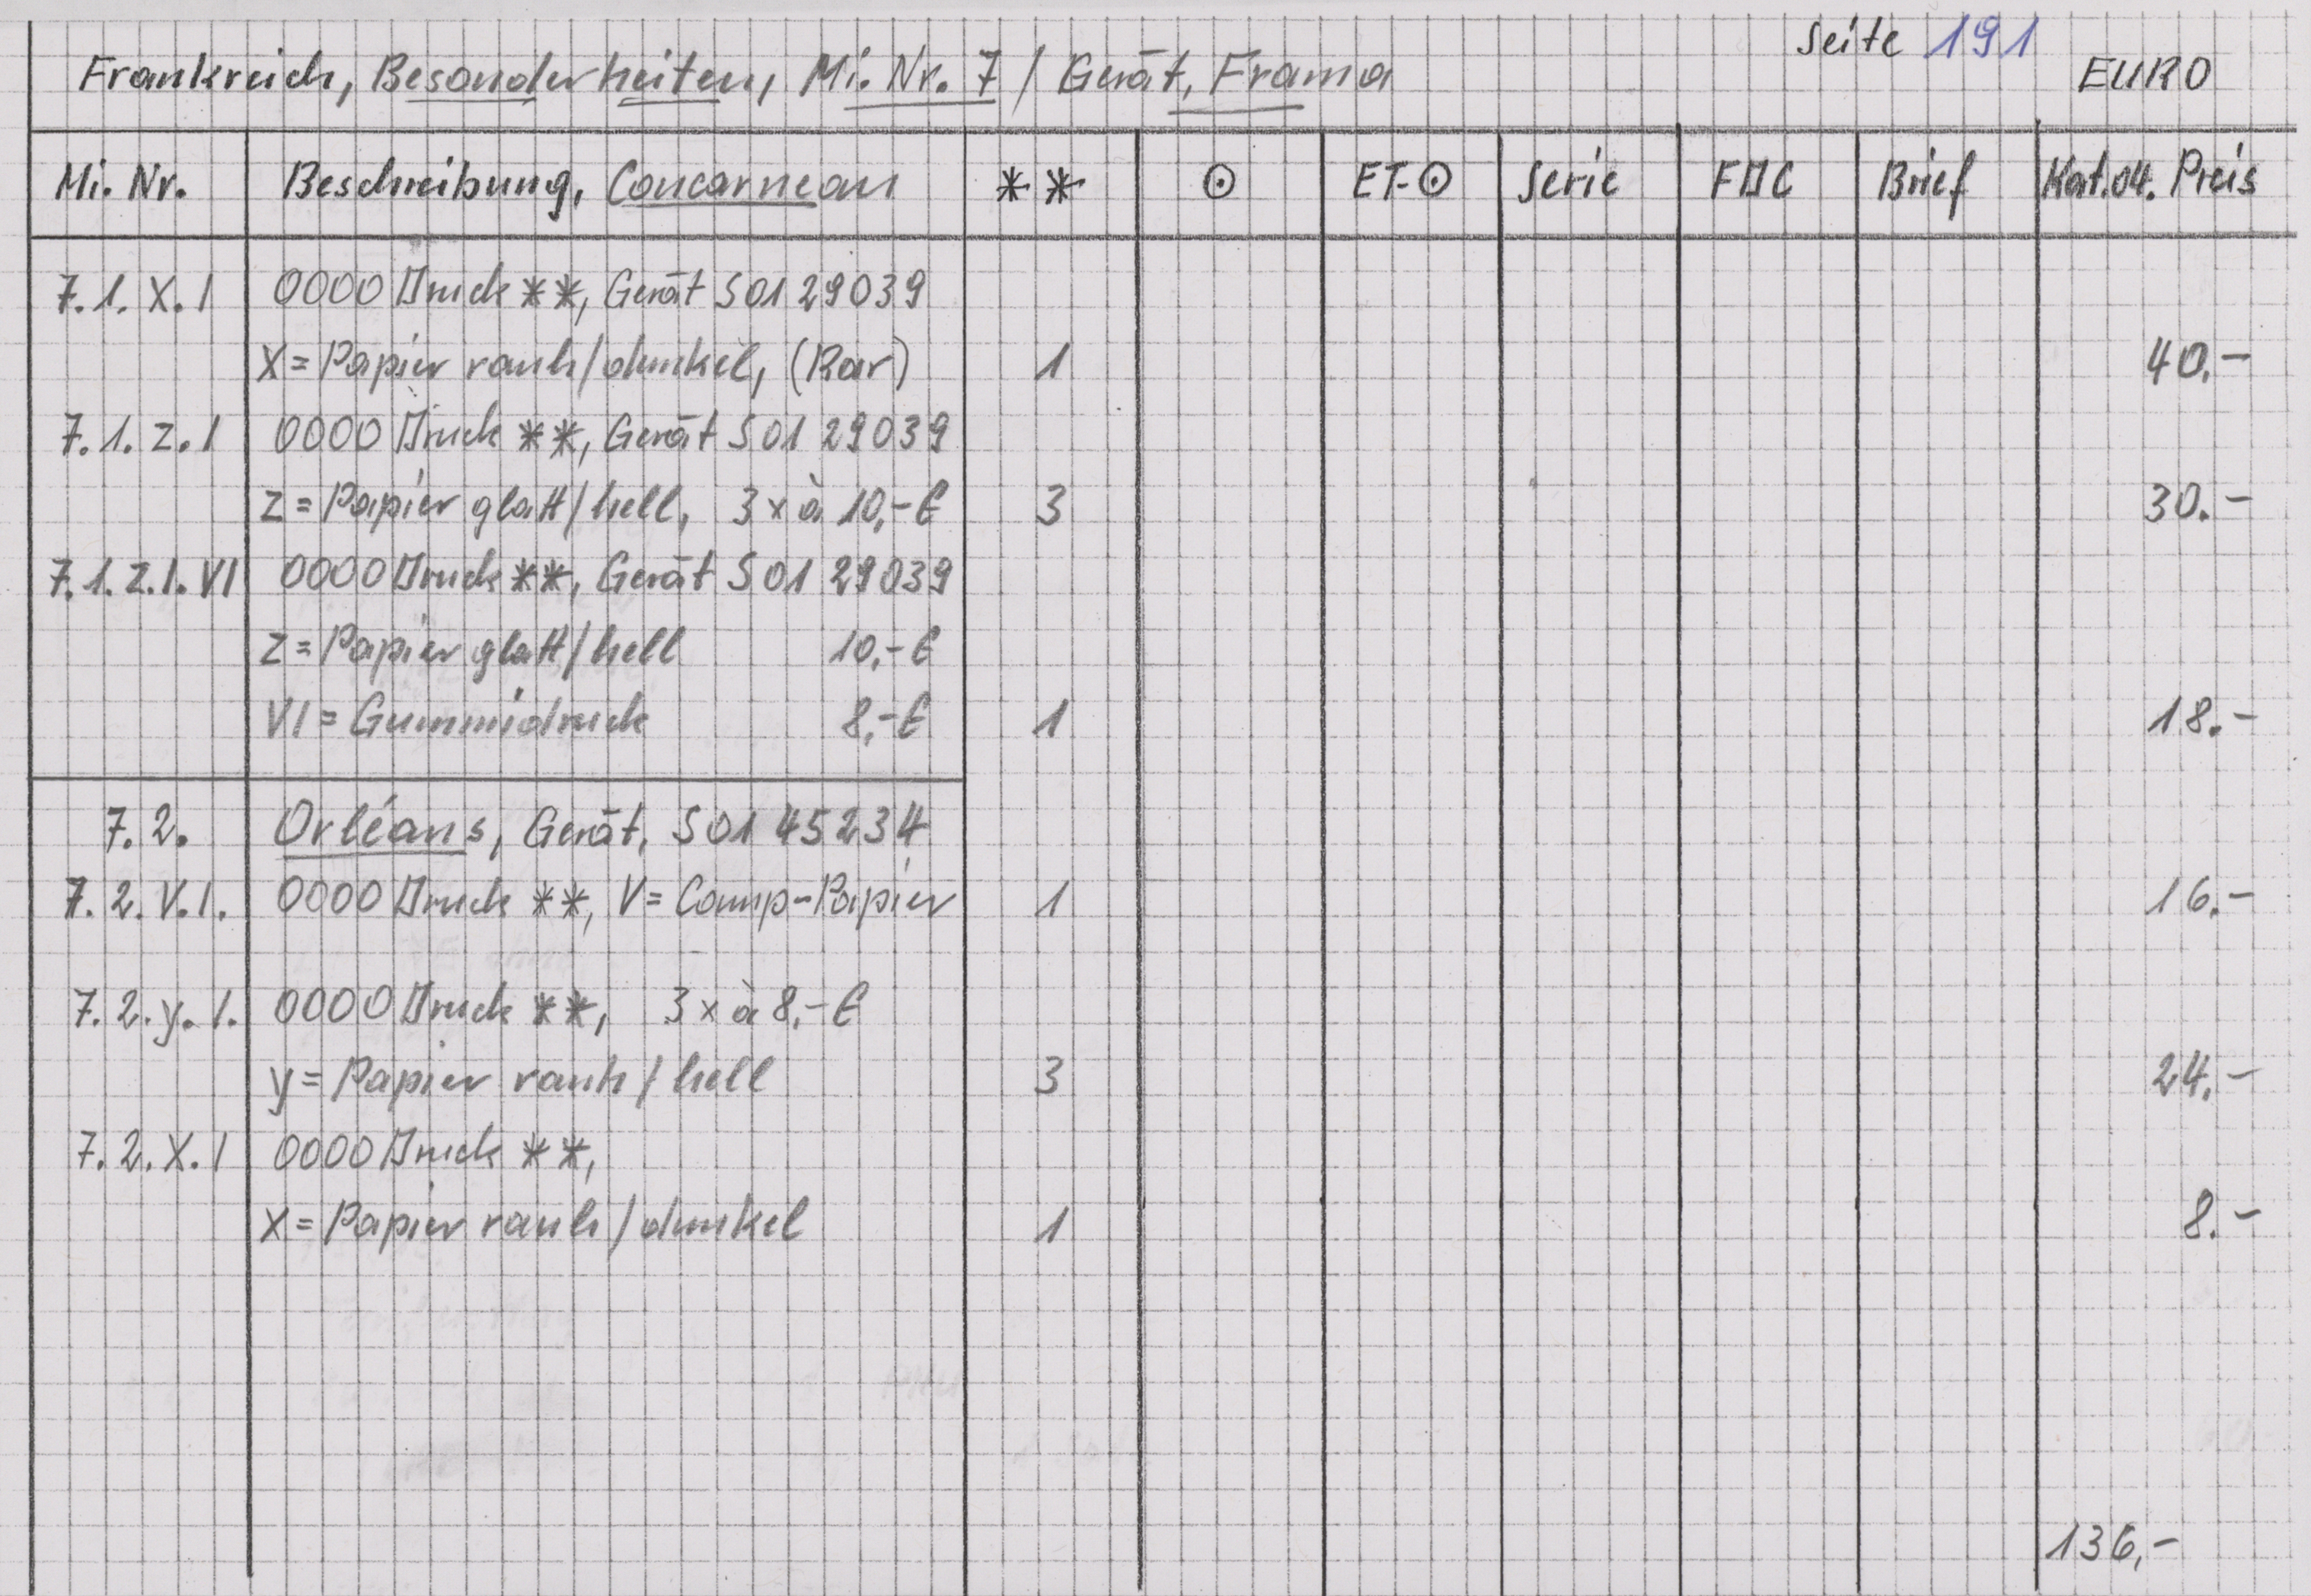 Seite 191
Frankreich, Besonderheiten, Mi. Nr. 7 / Gerät, Frama EURO
Mi. Nr. Beschreibung, Concarneau ** ⊙ ET-⊙ Serie FDC Brief Kat.04. Preis
7.1. X. I 0000 Druck **, Gerät S01 29039
X = Papier rauh/dunkel, (Rar) 1 40.-
7.1. Z. I 0000 Druck **, Gerät S01 29039
Z = Papier glatt/hell, 3 x à 10,- € 3 30.-
7.1. Z. I. VI 0000 Druck **, Gerät S01 29039
Z = Papier glatt/hell 10,- €
VI = Gummidruck 8,- € 1 18.-
7.2. Orléans, Gerät, S01 45234
7.2. V. I. 0000 Druck **, V = Comp-Papier 1 16.-
7.2. y. I. 0000 Druck **, 3 x à 8,- €
y = Papier rauh/hell 3 24.-
7.2. X. I 0000 Druck **,
X = Papier rauh/dunkel 1 8.-
136,-